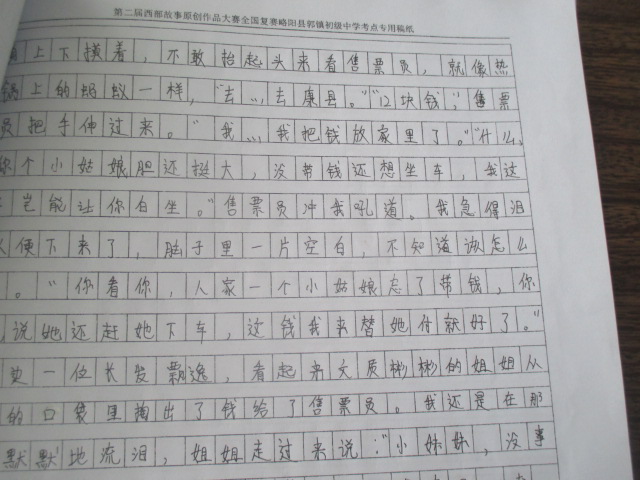 第二届西部故事原创作品大赛全国复赛略阳县郭镇初级中学考点专用稿纸
上下摸着，不敢抬起头来看售票员，就像热
锅上的蚂蚁一样，“去…去康县。”“12块钱，”售票
员把手伸过来。“我…我把钱放家里了。”“什么，
你个小姑娘胆还挺大，没带钱还想坐车，我这
岂能让你白坐。”售票员冲我吼道。我急得泪
便下来了，脑子里一片空白，不知道该怎么
。“你看你，人家一个小姑娘忘了带钱，你
说她还赶她下车，这钱我来替她付就好了。”
一位长发飘逸，看起来文质彬彬的姐姐从
的口袋里掏出了钱给了售票员。我还是在那
默默地流泪，姐姐走过来说：“小妹妹，没事